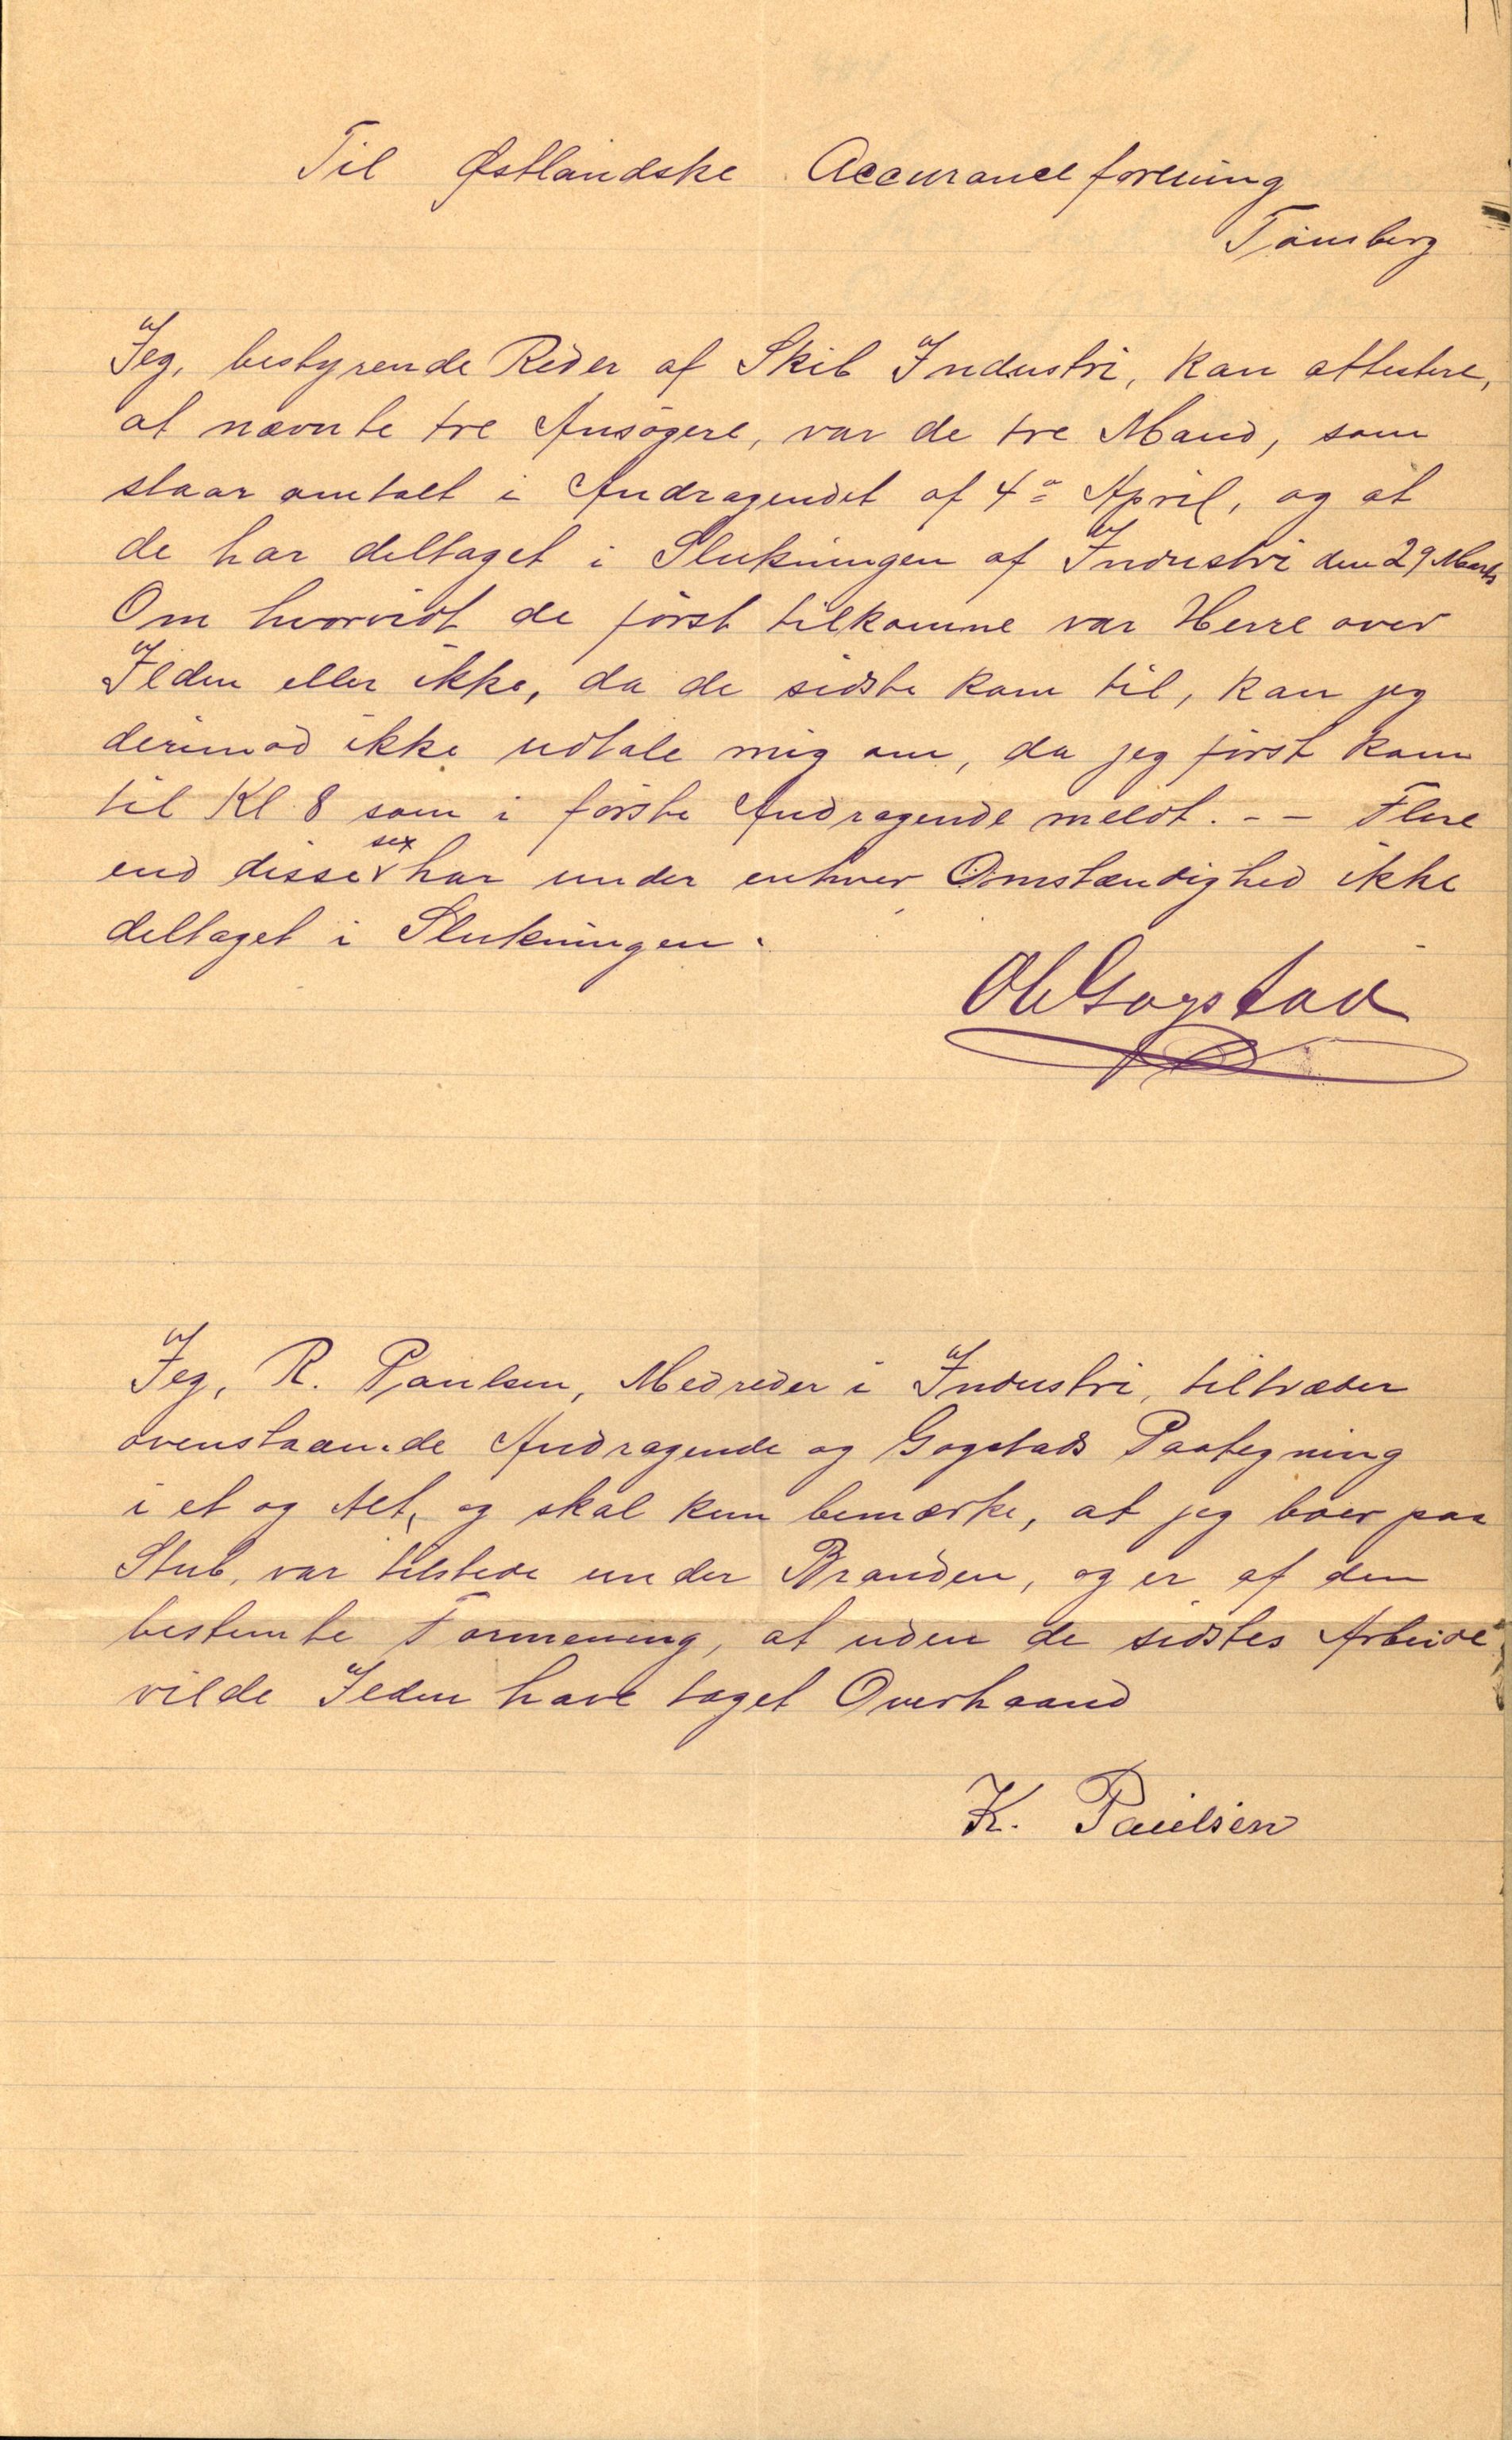 Til Østlandske Accuranceforening
Tönsberg
Jeg, bestyrende Reder af Skib Industri, kan attestere,
at nævnte tre Ansögere, var de tre Mand, som
staar omtalt i Andragendet af 4de April, og at
de har deltaget i Slukningen af Industri den 29 Marts
Om hvorvidt de först tilkomne var Herre over
Ilden eller ikke, da de sidste kom til, kan jeg
derimod ikke udtale mig om, da jeg först kom
til Kl 8 som i förste Andragende meldt. - - Flere
end disse sex har under enhver Omstændighed ikke
deltaget i Slukningen.
Ole Gogstad
Jeg, R. Paulsen, Medreder i Industri, tiltræder
ovenstaaende Andragende og Gogstads Paategning
i et og Alt, og skal kun bemærke, at jeg boer paa
Stub, var tilstede under Branden, og er af den
bestemte Formening, at uden de sidstes Arbeide
vilde Ilden have taget Overhaand
K. Paulsen